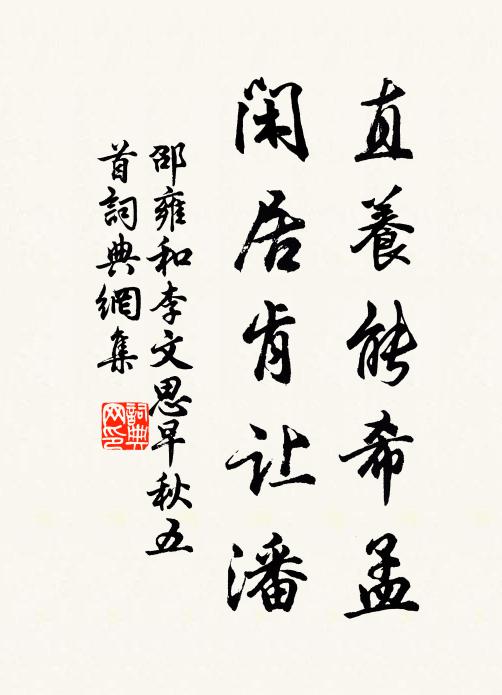 直養能希孟
閑居肯让潘
邵雍和李文思早秋五
首詞典網集
詞典
网印